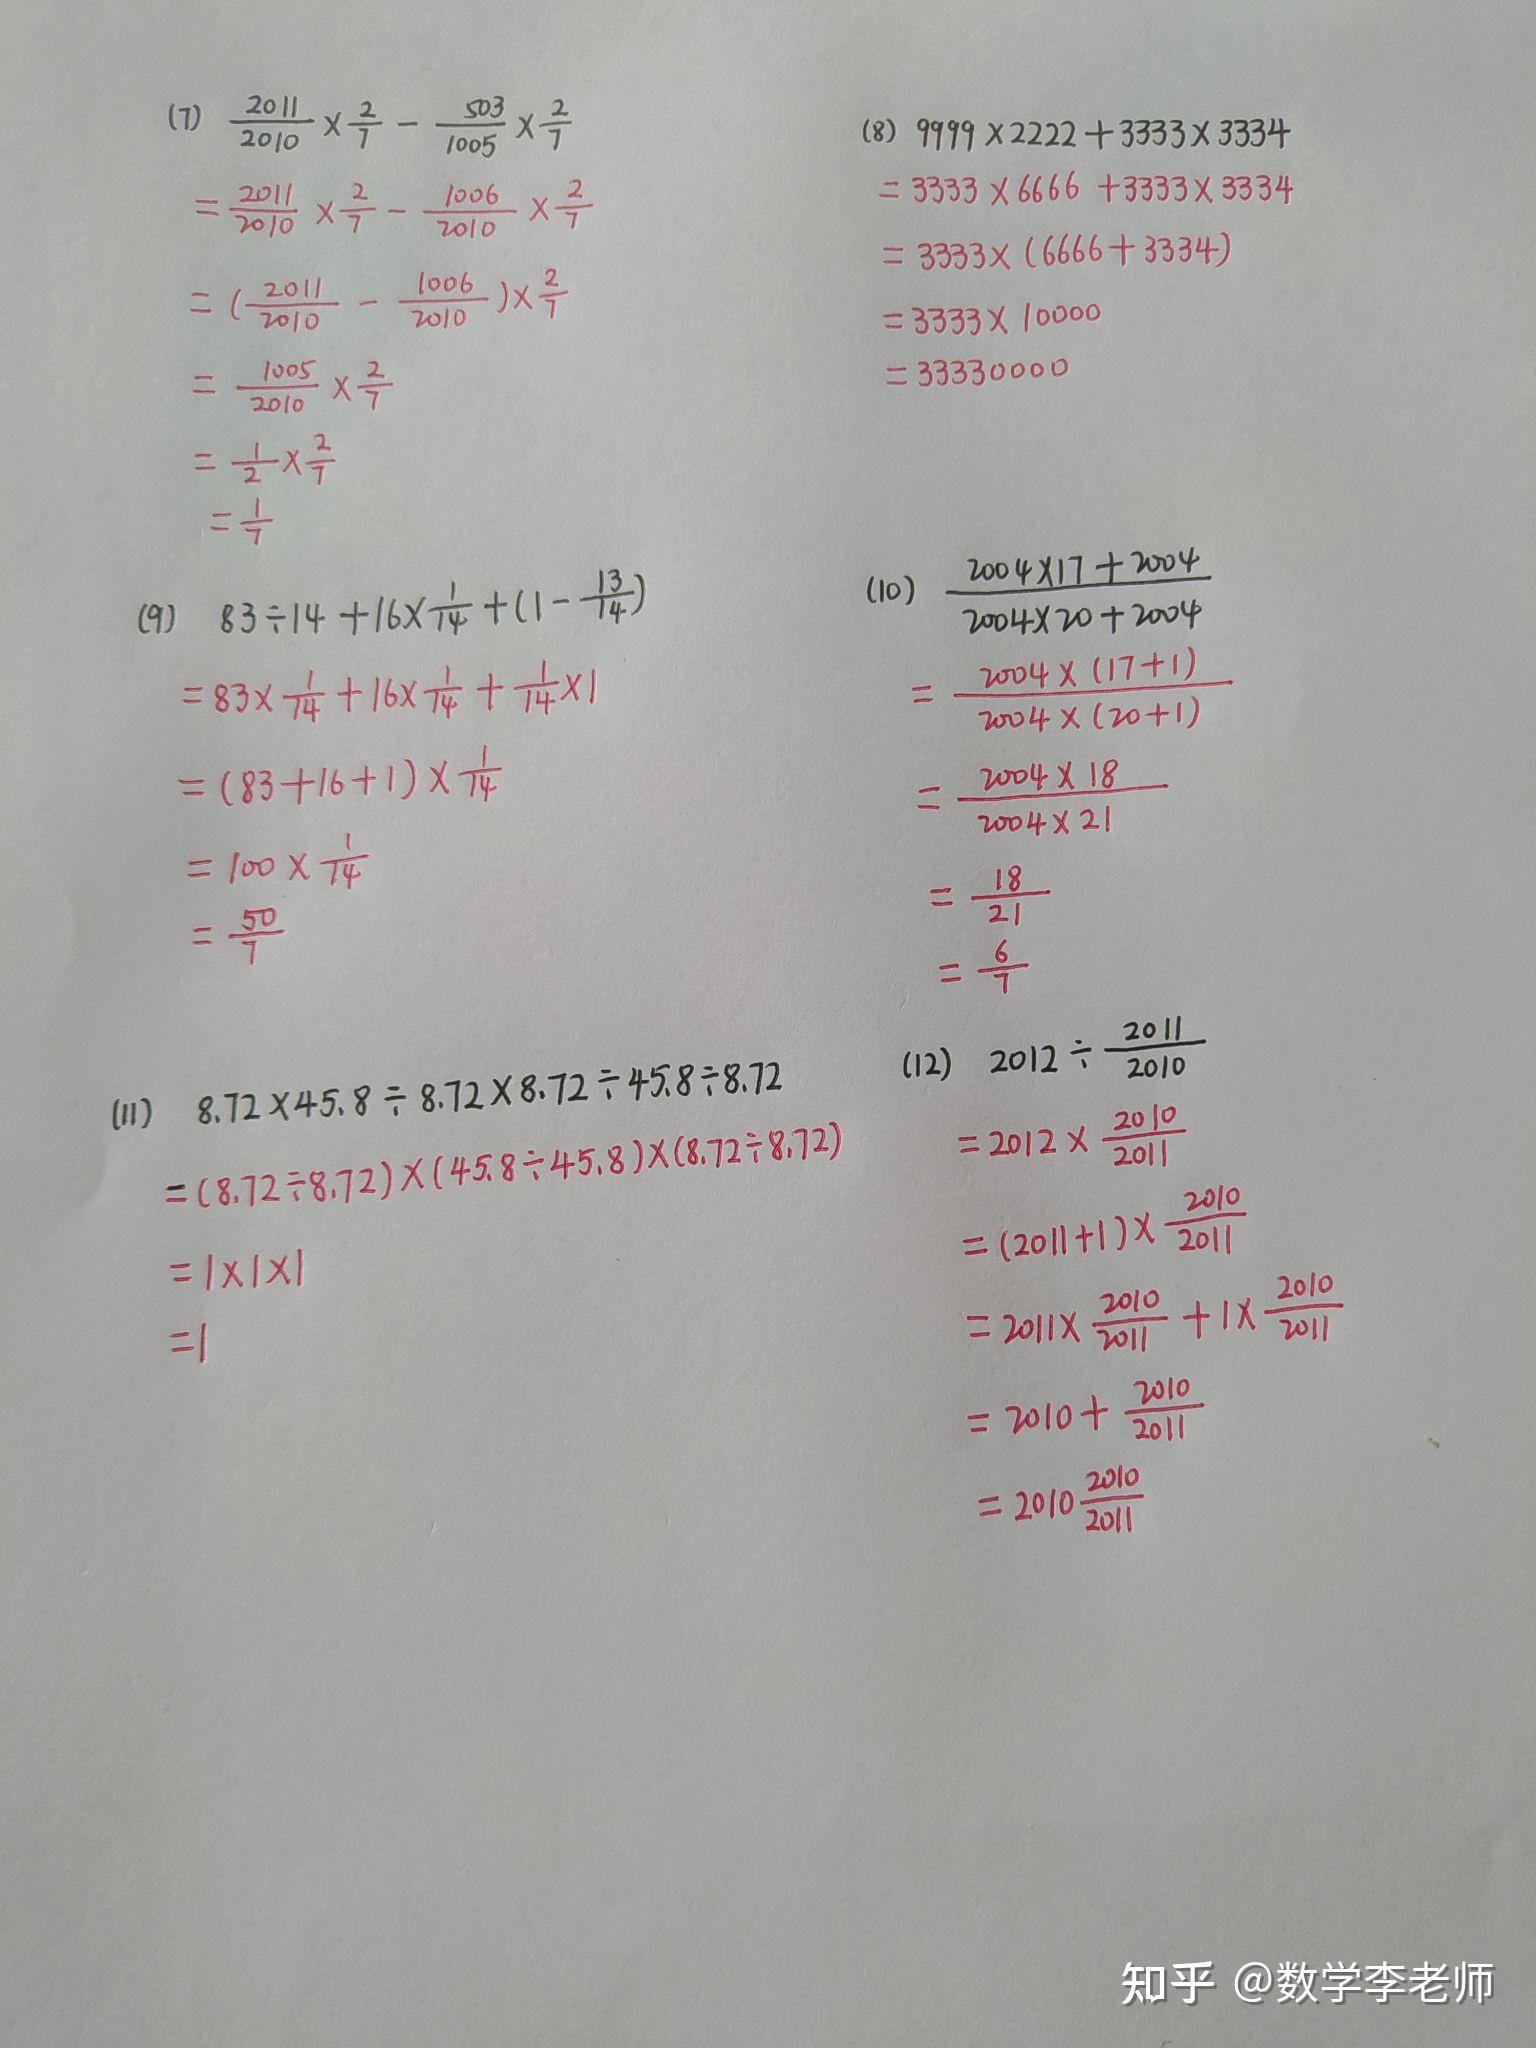 (7) 2011/2010 × 2/7 − 503/1005 × 2/7
= 2011/2010 × 2/7 − 1006/2010 × 2/7
= (2011/2010 − 1006/2010) × 2/7
= 1005/2010 × 2/7
= 1/2 × 2/7
= 1/7
(8) 9999×2222+3333×3334
= 3333×6666+3333×3334
= 3333×(6666+3334)
= 3333×10000
= 33330000
(9) 83÷14+16×1/14+(1−13/14)
= 83×1/14+16×1/14+1/14×1
= (83+16+1)×1/14
= 100×1/14
= 50/7
(10) (2004×17+2004)/(2004×20+2004)
= (2004×(17+1))/(2004×(20+1))
= (2004×18)/(2004×21)
= 18/21
= 6/7
(11) 8.72×45.8÷8.72×8.72÷45.8÷8.72
= (8.72÷8.72)×(45.8÷45.8)×(8.72÷8.72)
= 1×1×1
= 1
(12) 2012÷2011/2010
= 2012×2010/2011
= (2011+1)×2010/2011
= 2011×2010/2011+1×2010/2011
= 2010+2010/2011
= 2010 2010/2011
知乎 @数学李老师